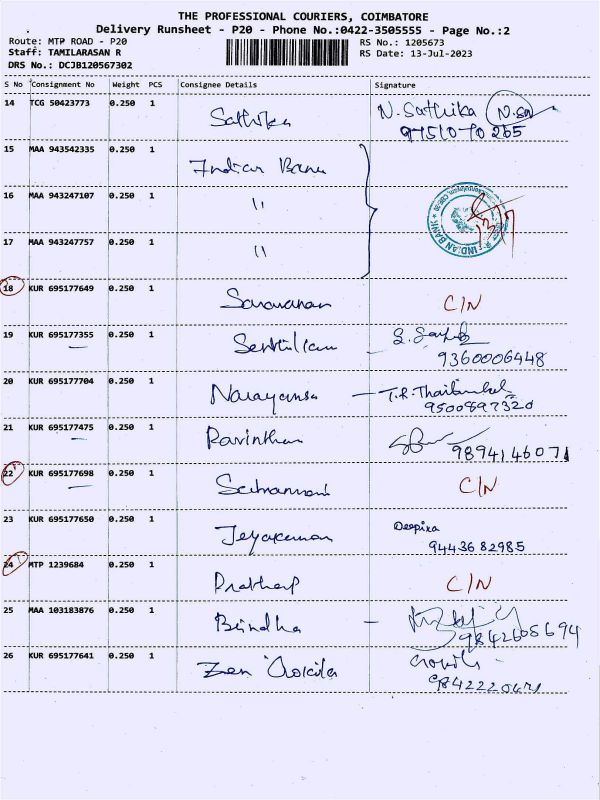 THE PROFESSIONAL COURIERS, COIMBATORE
Delivery Runsheet - P20 - Phone No.:0422-3505555 - Page No.:2
Route: MTP ROAD - P20 RS No.: 1205673
Staff: TAMILARASAN R RS Date: 13-Jul-2023
DRS No.: DCJB120567302
S No Consignment No Weight PCS Consignee Details Signature
14 TCG 50423773 0.250 1 Sathika N. Sathika
97510 70265
15 MAA 943542335 0.250 1 Indian Bank
16 MAA 943247107 0.250 1 "
17 MAA 943247757 0.250 1 "
INDIAN BANK
18 KUR 695177649 0.250 1 Saravanan C/N
19 KUR 695177355 0.250 1
9360006448
20 KUR 695177704 0.250 1 T.R.
9500897320
21 KUR 695177475 0.250 1 Ravinthan
9894146071
22 KUR 695177698 0.250 1 C/N
23 KUR 695177650 0.250 1 Jeyakumar Deepika
9443682985
24 MTP 1239684 0.250 1 Prathap C/N
25 MAA 103183876 0.250 1 Brindha
9842605694
26 KUR 695177641 0.250 1 Zen